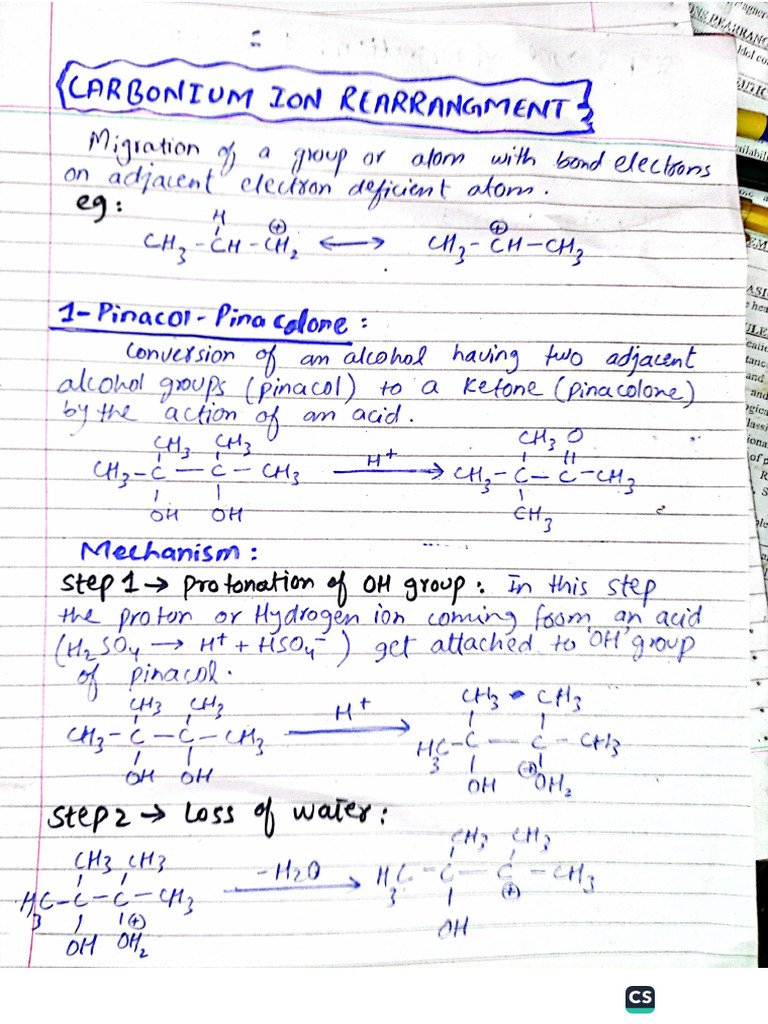 CARBONIUM ION REARRANGMENT
Migration of a group or atom with bond electrons
on adjacent electron deficient atom.
eg:
H
CH3-CH-CH2 ⊕ ⟷ CH3-CH-CH3 ⊕
1-Pinacol-Pinacolone:
Conversion of an alcohol having two adjacent
alcohol groups (pinacol) to a Ketone (pinacolone)
by the action of an acid.
CH3 CH3 CH3 O
CH3-C-C-CH3 H+ → CH3-C-C-CH3
OH OH CH3
Mechanism:
Step 1 → protonation of OH group: In this step
the proton or Hydrogen ion coming from an acid
(H2SO4 → H+ + HSO4-) get attached to 'OH' group
of pinacol.
CH3 CH3 CH3 CH3
CH3-C-C-CH3 H+ → H3C-C-C-CH3
OH OH OH ⊕OH2
Step 2 → Loss of water:
CH3 CH3 CH3 CH3
H3C-C-C-CH3 -H2O → H3C-C-C-CH3
OH ⊕OH2 OH ⊕
CS